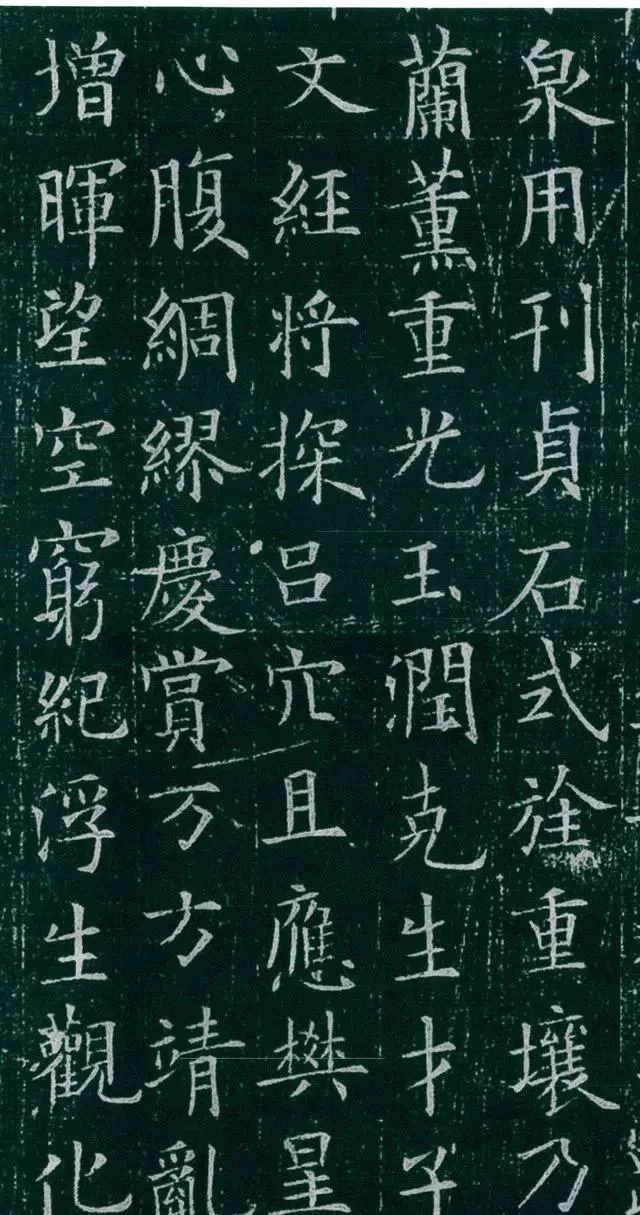 泉用刊貞石式旌重壤乃
蘭薫重光玉潤克生才子
文經将探呂穴且應樊星
心腹綢繆慶賞万方靖亂
增暉望空窮紀浮生觀化